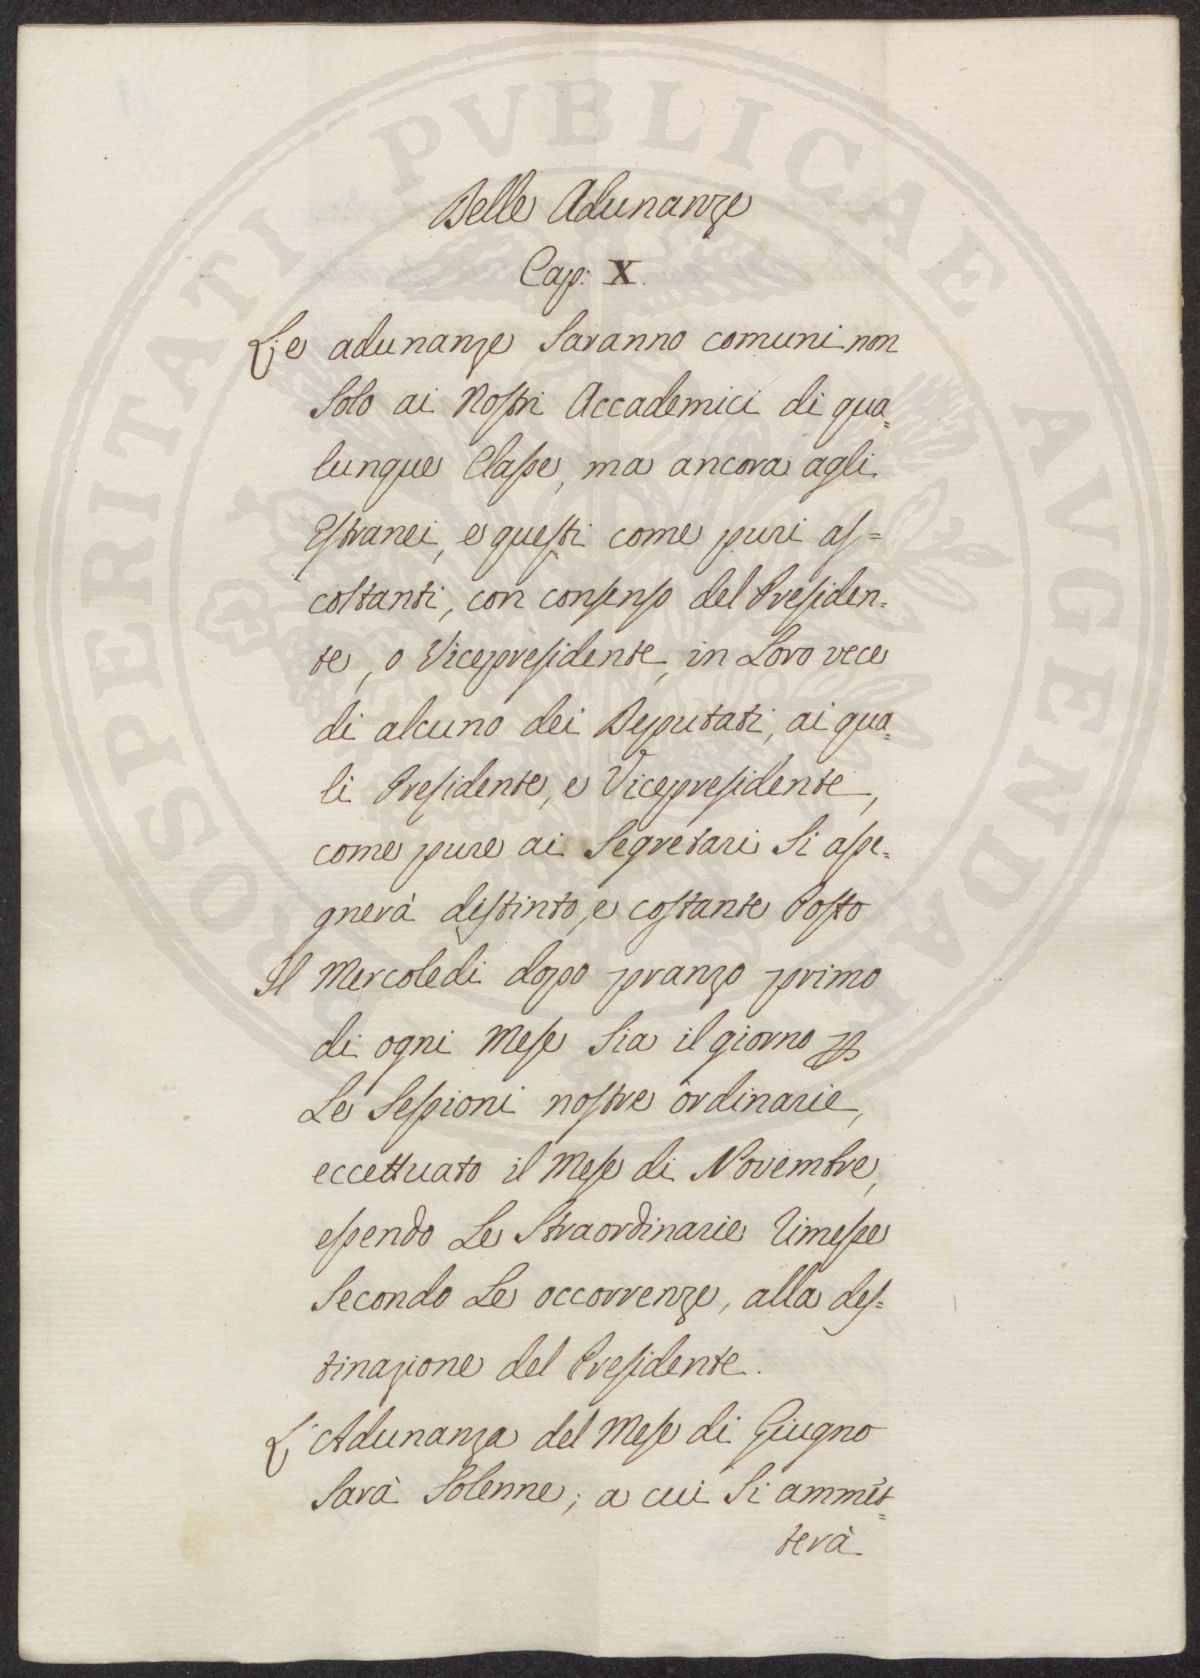 PROSPERITATI PVBLICAE AVGENDAE
Delle Adunanze
Cap: X.
Le adunanze Saranno comuni non
Solo ai Nostri Accademici di qua=
lunque Classe, ma ancora agli
Estranei, e questi come puri as=
coltanti, con consenso del Presiden=
te, o Vicepresidente, in Loro vece
di alcuno dei Deputati, ai qua=
li Presidente, e Vicepresidente,
come pure ai Segretari Si asse=
gnerà distinto, e costante Posto
Il Mercoledi dopo pranzo primo
di ogni Mese Sia il giorno p
Le Sessioni nostre ordinarie,
eccettuato il Mese di Novembre,
essendo Le Straordinarie rimesse
Secondo Le occorrenze, alla des=
tinazione del Presidente.
L'Adunanza del Mese di Giugno
Sarà Solenne; a cui Si ammet=
terà